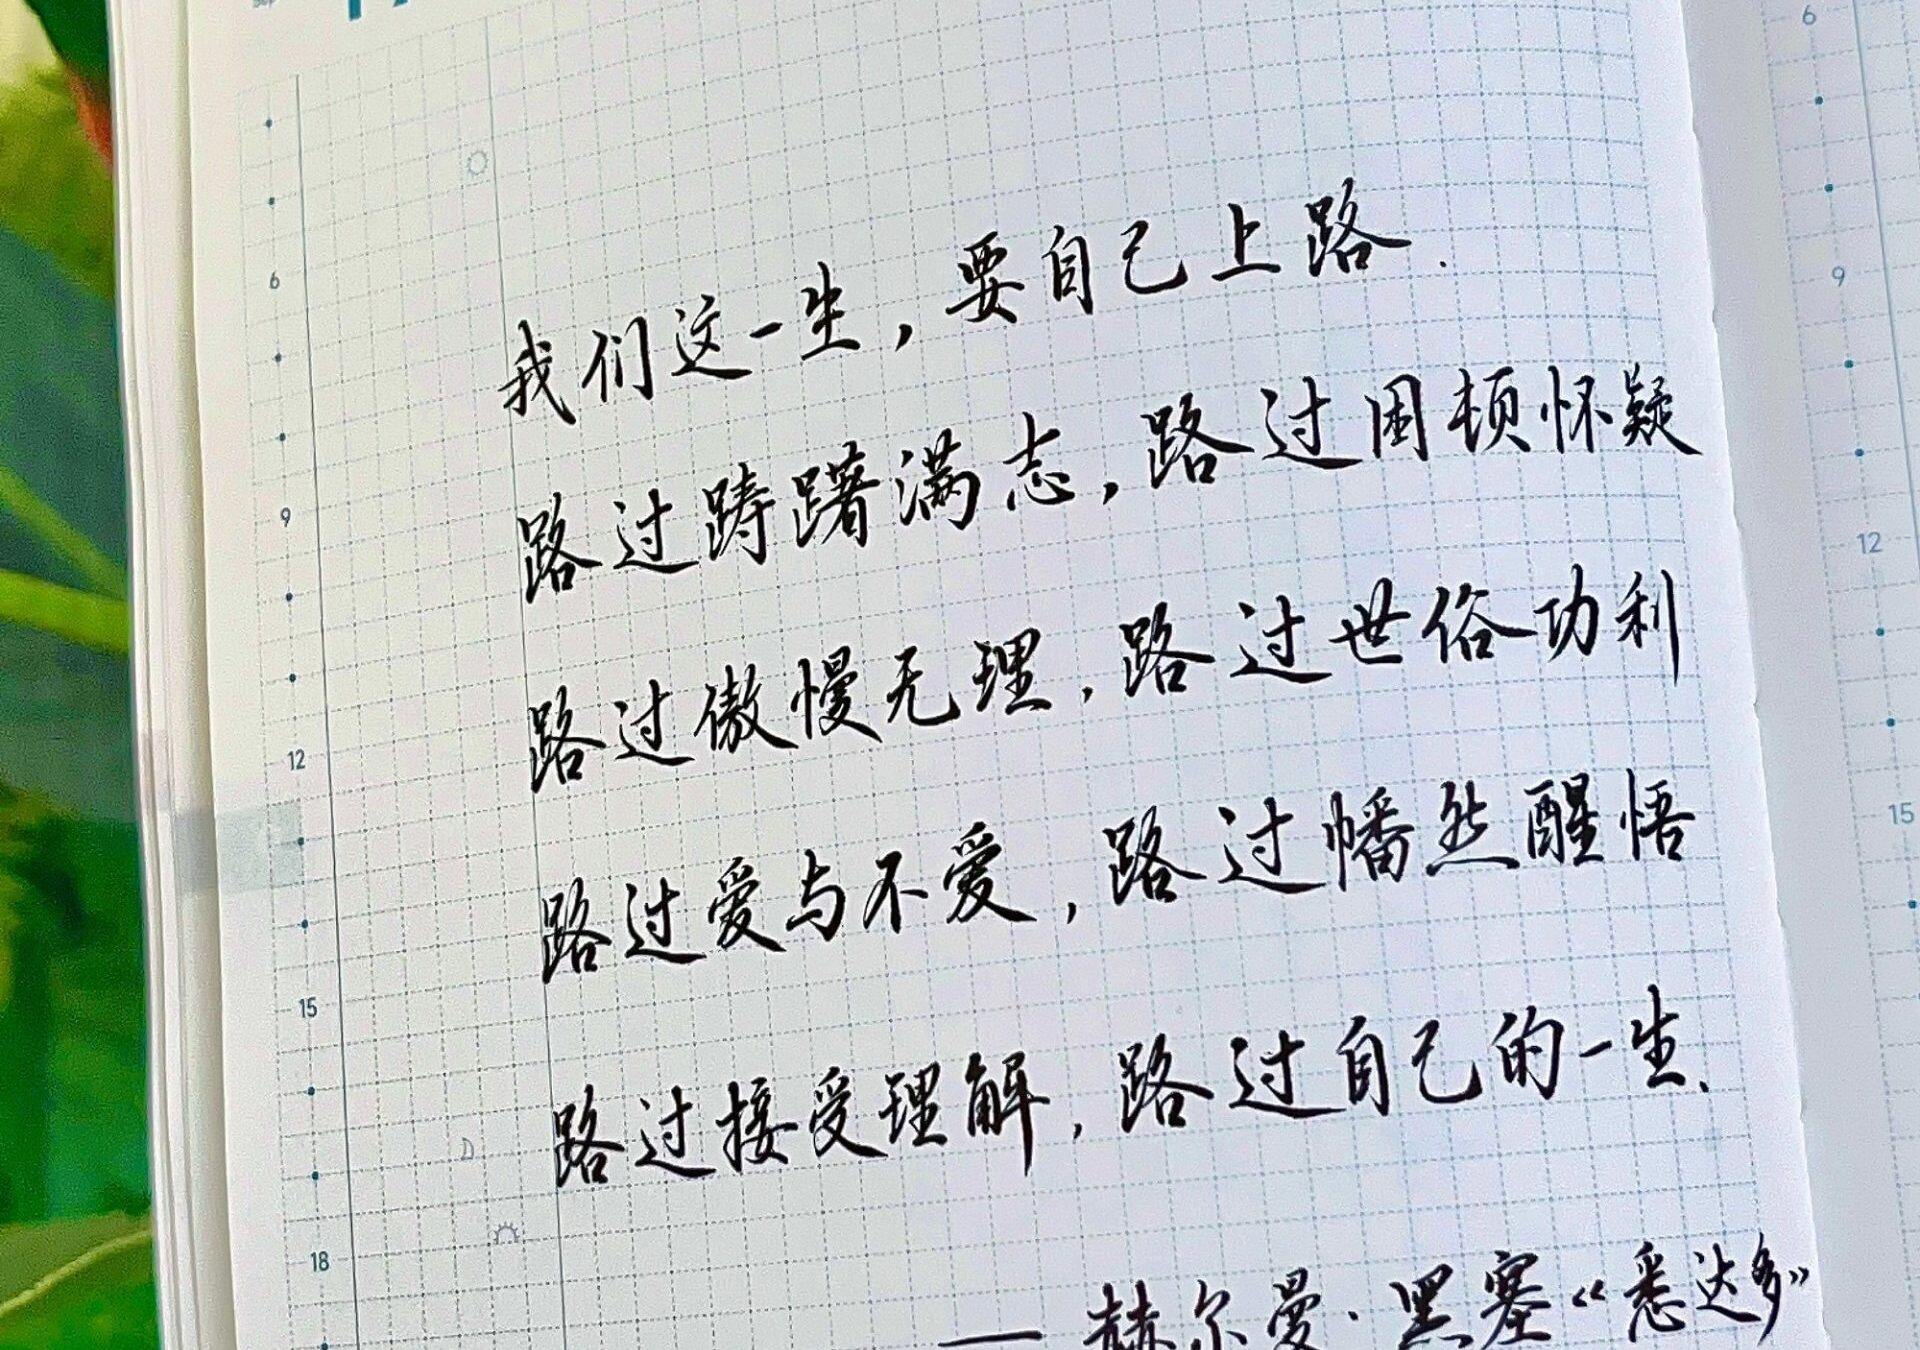 我们这一生，要自己上路.
路过踌躇满志，路过困顿怀疑
路过傲慢无理，路过世俗功利
路过爱与不爱，路过幡然醒悟
路过接受理解，路过自己的一生、
——赫尔曼·黑塞《悉达多》
6
9
12
15
18
6
9
12
15